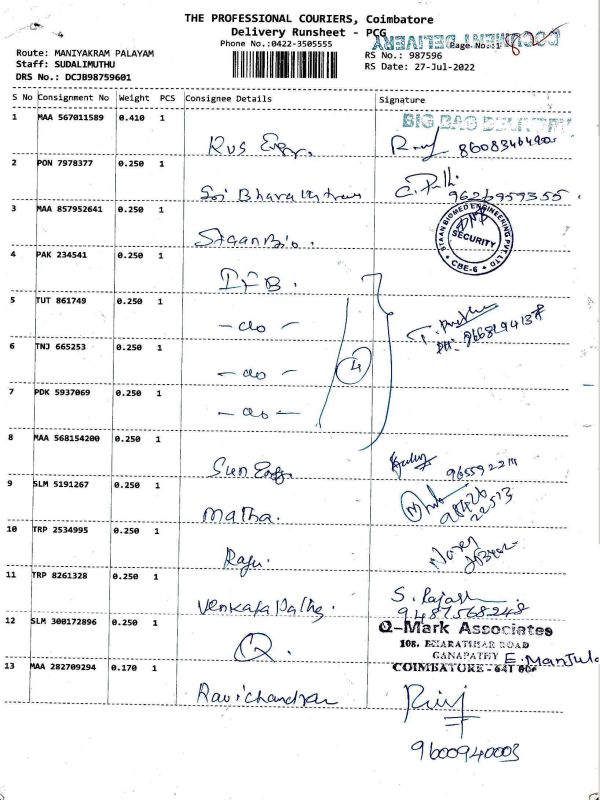 THE PROFESSIONAL COURIERS, Coimbatore
Delivery Runsheet - PCG
DOCUMENT DELIVERY
Phone No.:0422-3505555
Page No.:1
82
Route: MANIYAKRAM PALAYAM
RS No.: 987596
Staff: SUDALIMUTHU
RS Date: 27-Jul-2022
DRS No.: DCJB98759601
S No Consignment No Weight PCS Consignee Details Signature
1 MAA 567011589 0.410 1
BIG BAG DELIVERY
Kvs Engg.
2 PON 7978377 0.250 1
Sri Bhara
9626959355
3 MAA 857952641 0.250 1
StaanBio.
STAAN BIOMED ENGINEERING PVT LTD
SECURITY
CBE-6
4 PAK 234541 0.250 1
IFB.
5 TUT 861749 0.250 1
- do -
6 TNJ 665253 0.250 1
4
- do -
7 PDK 5937069 0.250 1
- do -
8 MAA 568154200 0.250 1
Sun Engg.
9 SLM 5191267 0.250 1
Matha.
98426
22513
10 TRP 2534995 0.250 1
Raju.
11 TRP 8261328 0.250 1
Venkatapathy.
S. Rajash
9487568248
12 SLM 300172896 0.250 1
Q.
Q-Mark Associates
108, BHARATHIAR ROAD
GANAPATHY
E. Manjula
COIMBATORE - 641 006
13 MAA 282709294 0.170 1
Ravichandran
9600940003